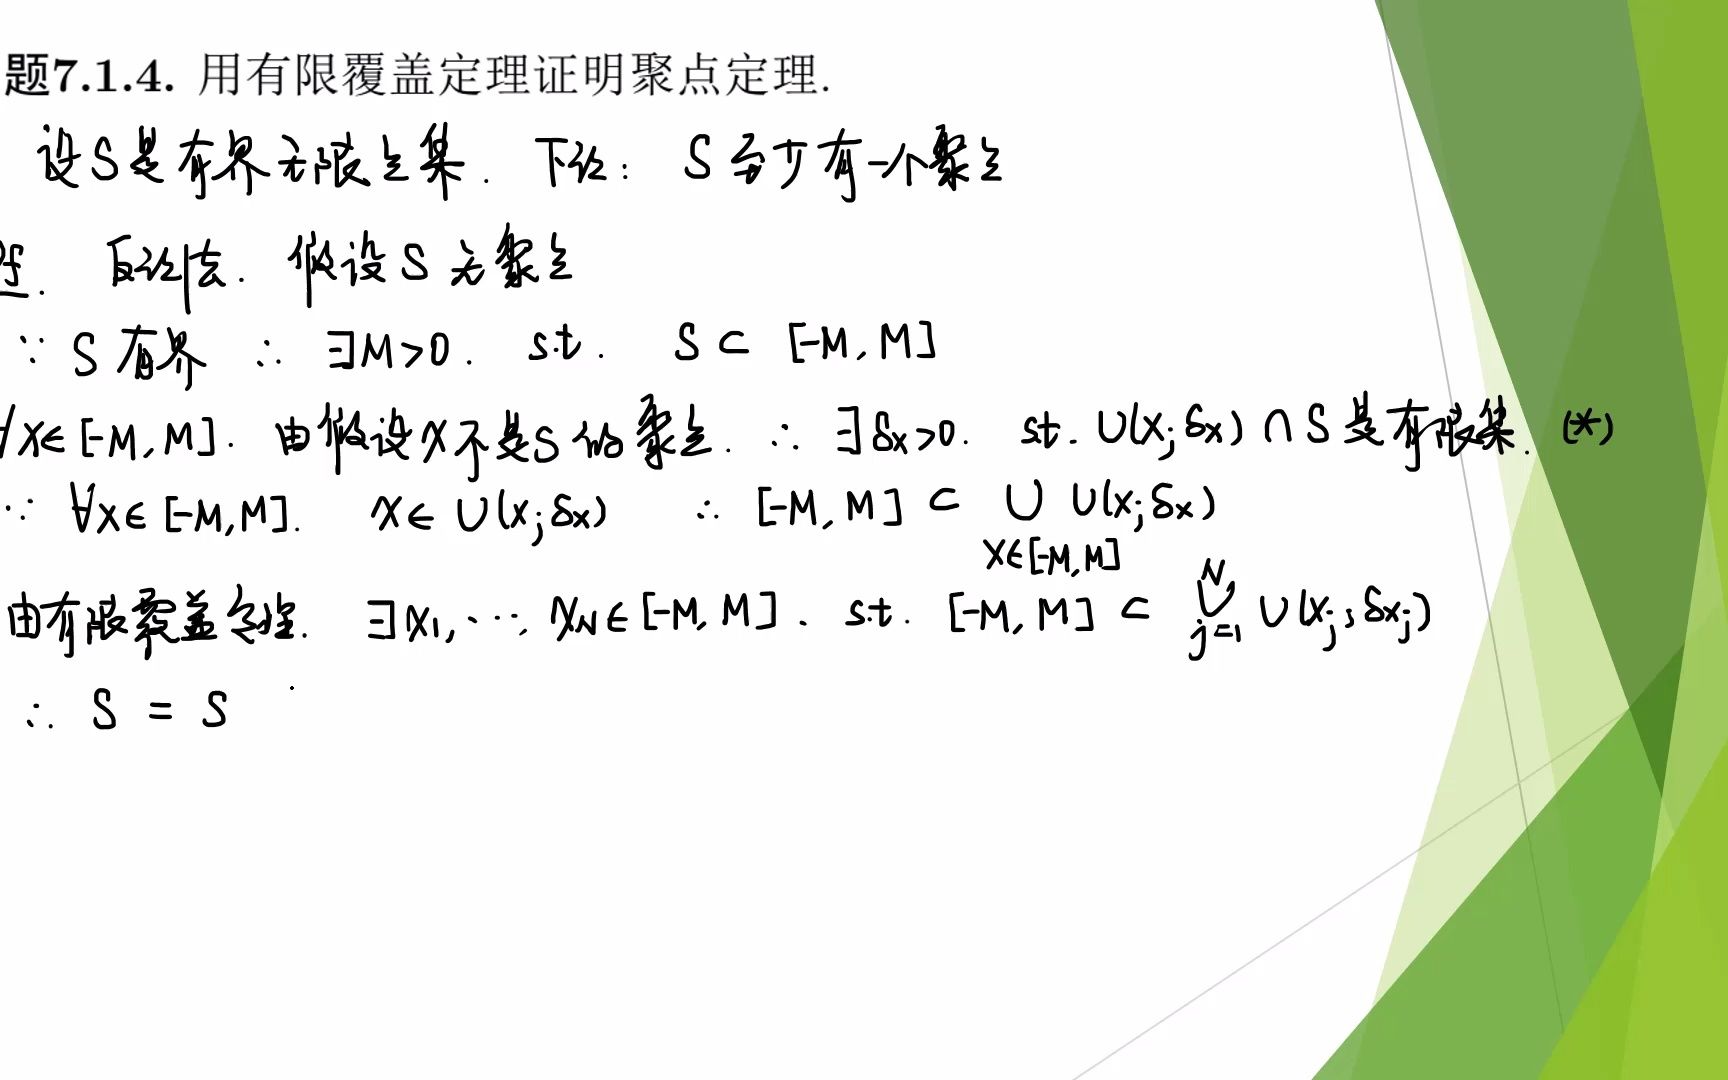 题7.1.4. 用有限覆盖定理证明聚点定理.
设S是有界无限点集. 下证: S至少有一个聚点
证. 反证法. 假设S无聚点
∵ S有界 ∴ ∃M>0. s.t. S⊂ [-M, M]
∀x∈[-M, M]. 由假设x不是S的聚点. ∴ ∃δx>0. st. U(x; δx)∩S是有限集. (*)
∵ ∀x∈[-M,M]. x∈U(x; δx) ∴ [-M, M] ⊂ ∪ U(x; δx)
x∈[-M, M]
由有限覆盖定理. ∃x1, ⋯, xN∈[-M, M]. s.t. [-M, M] ⊂ ∪_{j=1}^{N} U(xj; δxj)
∴ S = S